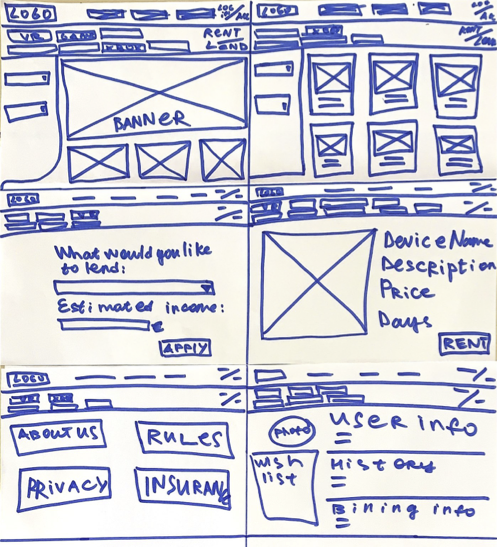 LOGO
LOG
IN/AC
VR
RENT
LEND
BANNER
LOGO
LOG
AC
RENT
LEND
LOGO
VR
What would you like
to lend:
Estimated income:
APPLY
LOGO
VR
Device Name
Description
Price
Days
RENT
LOGO
VR
ABOUT US
RULES
PRIVACY
INSURANCE
photo
User info
Wish
list
History
Billing info